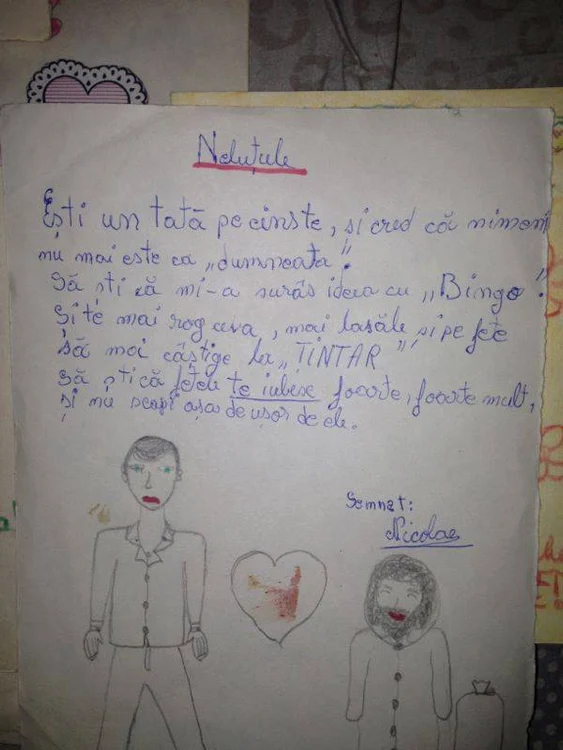 Neluțule
Ești un tată pe cinste, și cred că nimeni
nu mai este ca „dumneata".
Să ști că mi-a surâs ideea cu „Bingo".
Și te mai rog ceva, mai lasăle și pe fete
să mai câștige la „ȚINTAR"
Să ștică fetele te iubesc foarte, foarte mult,
și nu scapi așa de ușor de ele.
Semnat:
Nicolae